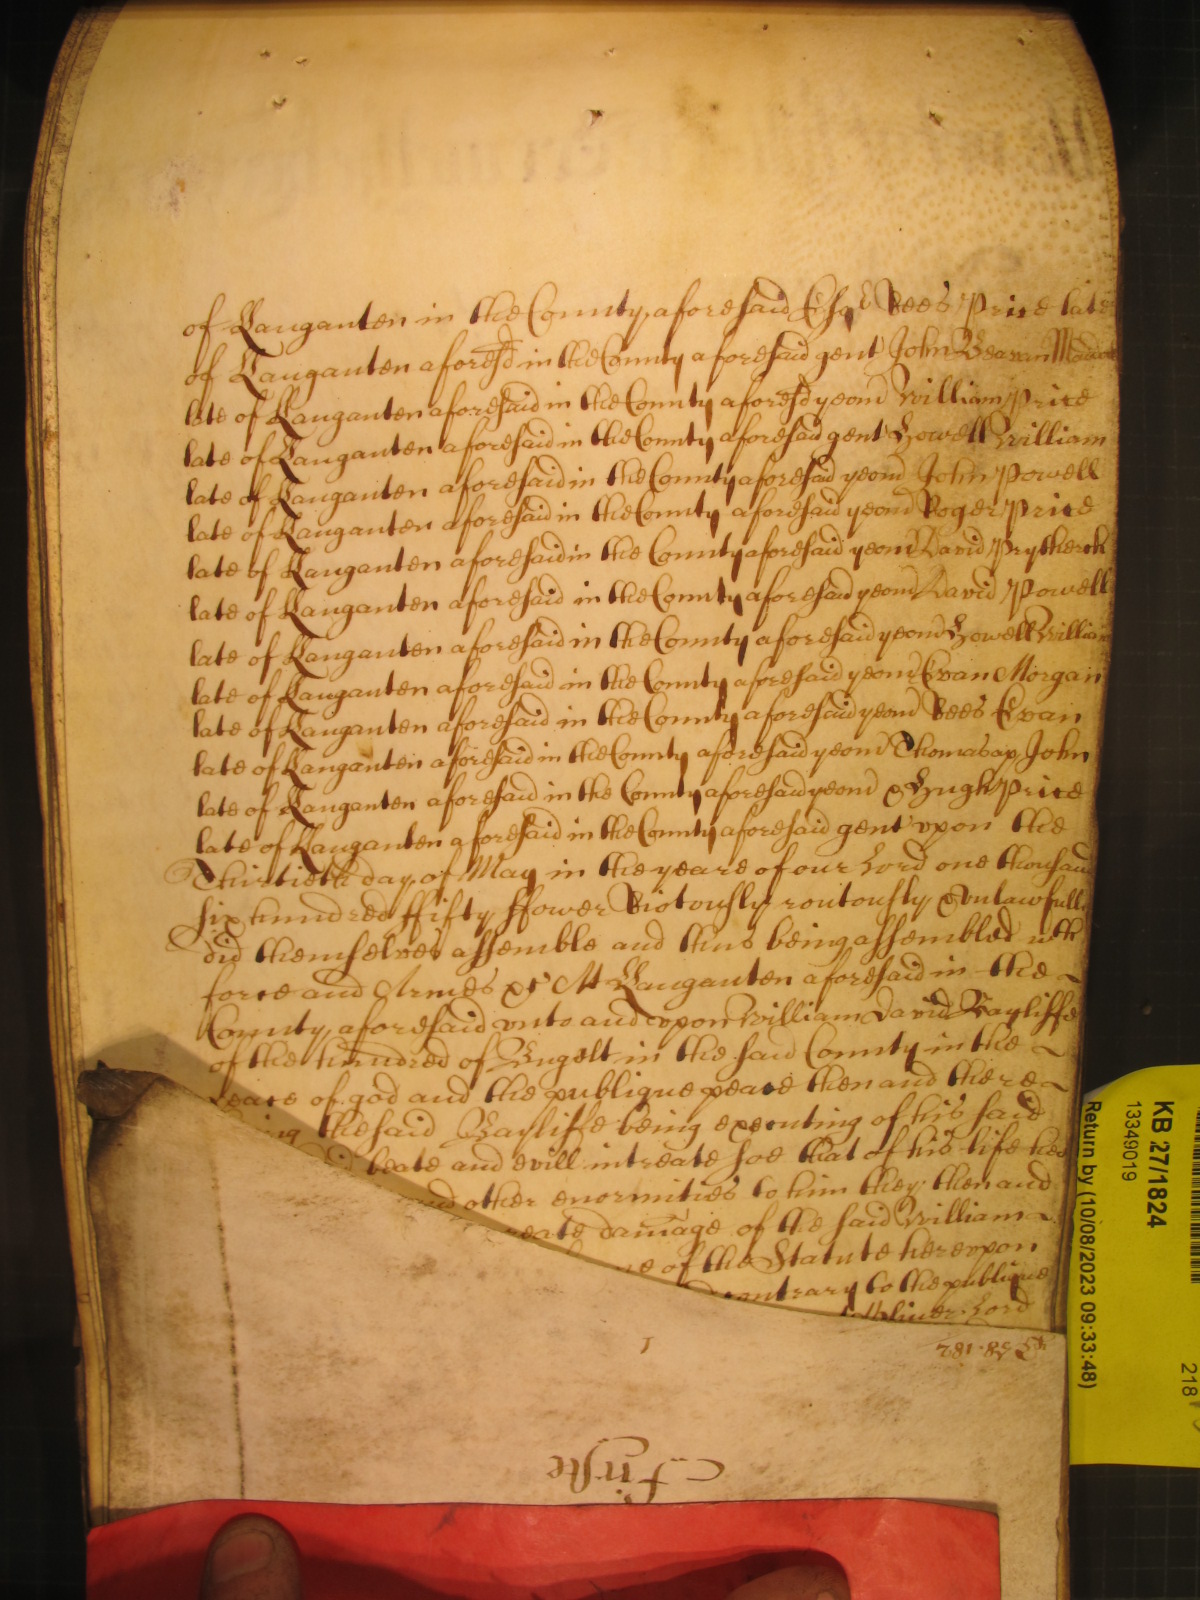 of Langanten in the County aforesaid Esqr Rees Price late
of Langanten aforesd in the County aforesaid gent John Beavan
late of Langanten aforesaid in the County aforesd yeom William Price
late of Langanten aforesaid in the County aforesaid gent Howell William
late of Langanten aforesaid in the County aforesaid yeom John Powell
late of Langanten aforesaid in the County aforesaid yeom Roger Price
late of Langanten aforesaid in the County aforesaid yeom David Prytherch
late of Langanten aforesaid in the County aforesaid yeom David Powell
late of Langanten aforesaid in the County aforesaid yeom Howell William
late of Langanten aforesaid in the County aforesaid yeom Evan Morgan
late of Langanten aforesaid in the County aforesaid yeom Rees Evan
late of Langanten aforesaid in the County aforesaid yeom Thomas ap John
late of Langanten aforesaid in the County aforesaid yeom & Hugh Price
late of Langanten aforesaid in the County aforesaid gent vpon the
Thirtieth day of May in the yeare of our Lord one thousand
six hundred ffifty ffower Riotously routously & vnlawfully
did themselves assemble and thus being assembled with
force and Armes &c At Langanten aforesaid in the
County aforesaid vnto and vpon William David Bayliffe
of the hundred of Bugelt in the said County in the
peace of god and the publique peace then and there
the said Bayliffe being executing of his said
beate and evill intreate soe that of his life hee
and other enormities to him they then and
damage of the said William
of the Statute herevpon
contrary to the publique
Oliver Lord
Firste
KB 27/1824
13349019
Return by (10/08/2023 09:33:48)
218